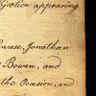 jection appearing
Jonathan
Bowen, and
the Occasion, and